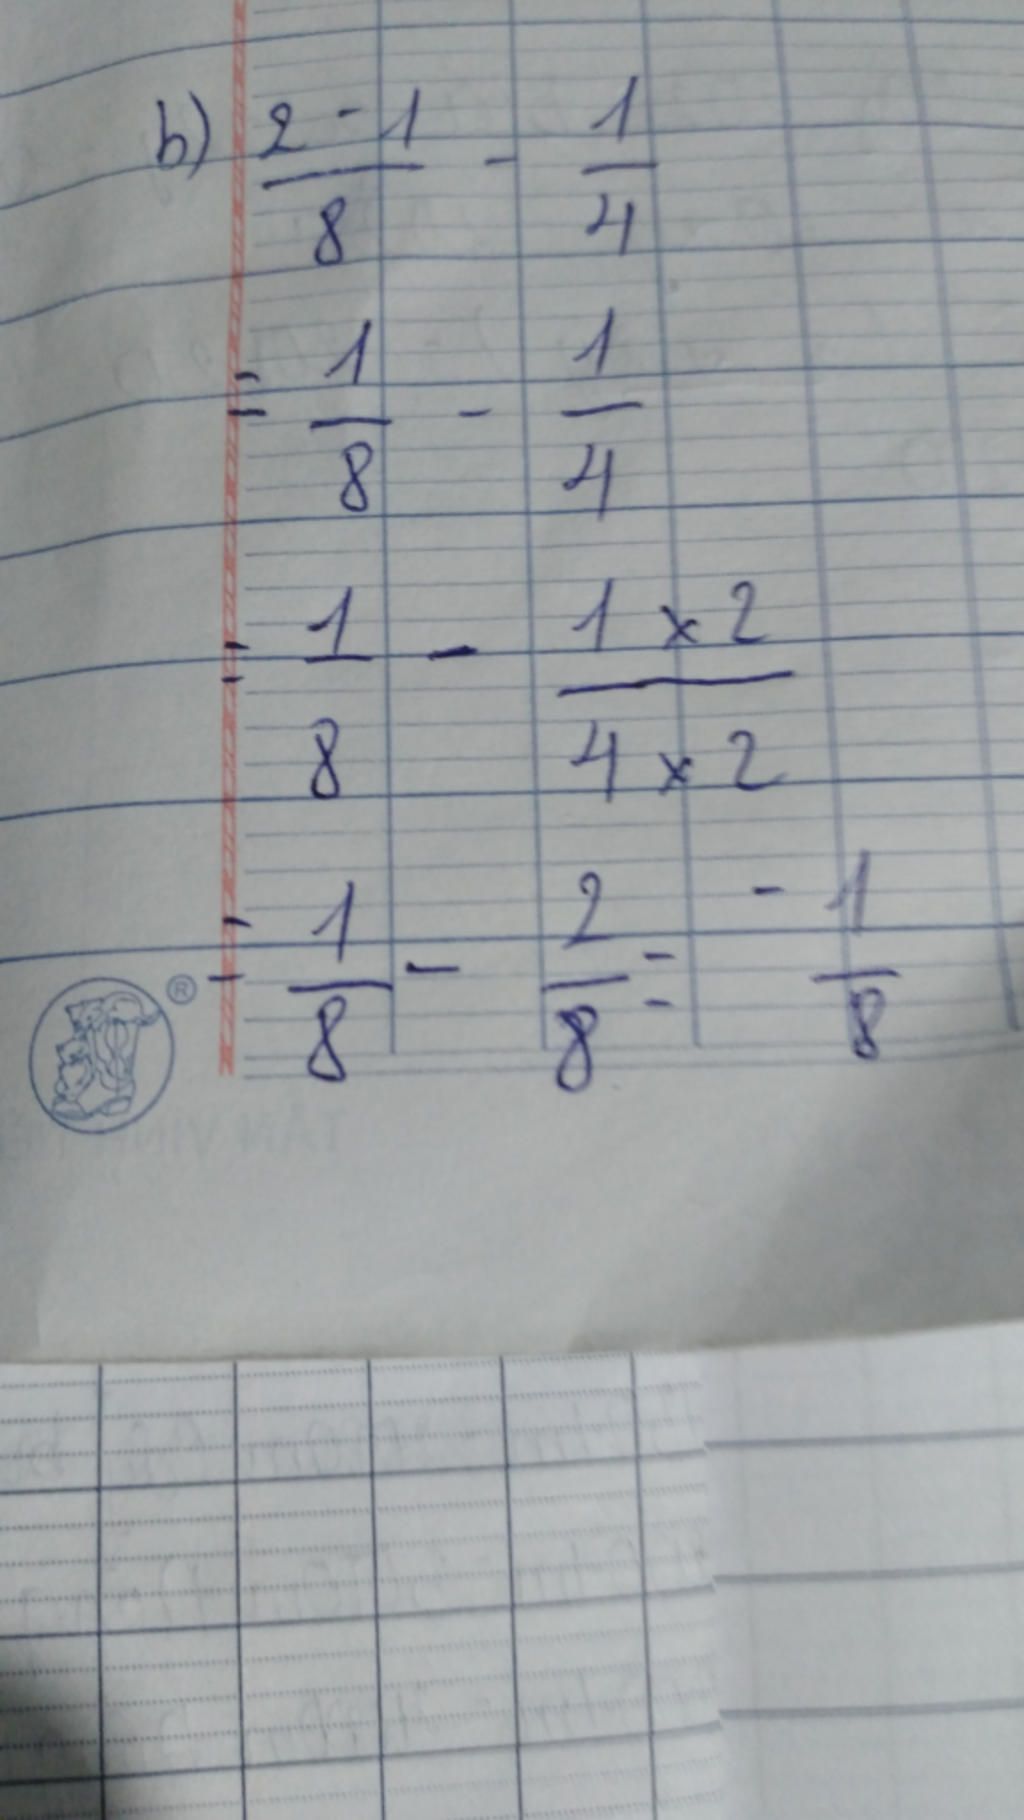 b) (2 - 1)/8 - 1/4
= 1/8 - 1/4
= 1/8 - (1 x 2)/(4 x 2)
= 1/8 - 2/8 = -1/8
®